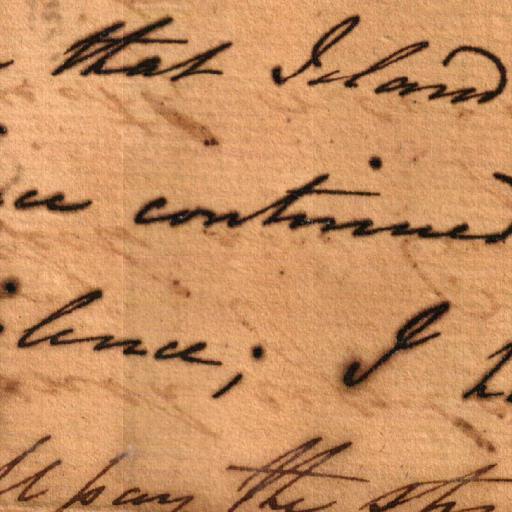 that Island
continued
ilence; I
pay the